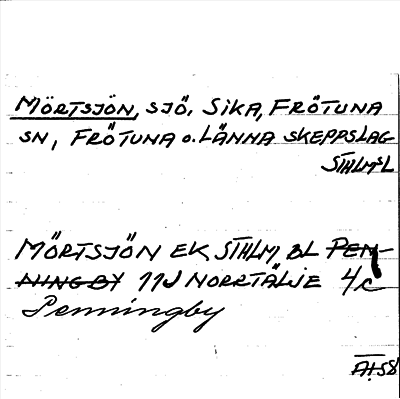 MÖRTSJÖN, SJÖ, SIKA, FRÖTUNA
SN, FRÖTUNA o. LÄNNA SKEPPSLAG
STHLMSL
MÖRTSJÖN EK STHLM, BL PEN-
NINGBY 11J NORRTÄLJE 4c
Penningby
AH58